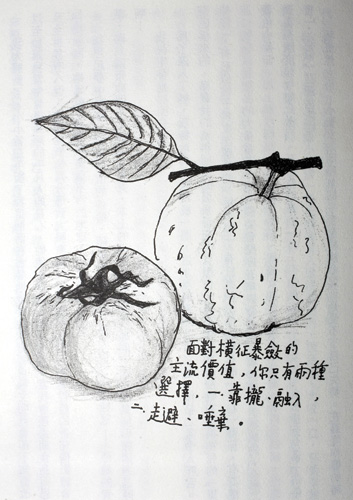 面對橫征暴斂的
主流價值，你只有兩種
選擇，一.靠攏、融入，
二.走避、唾棄。